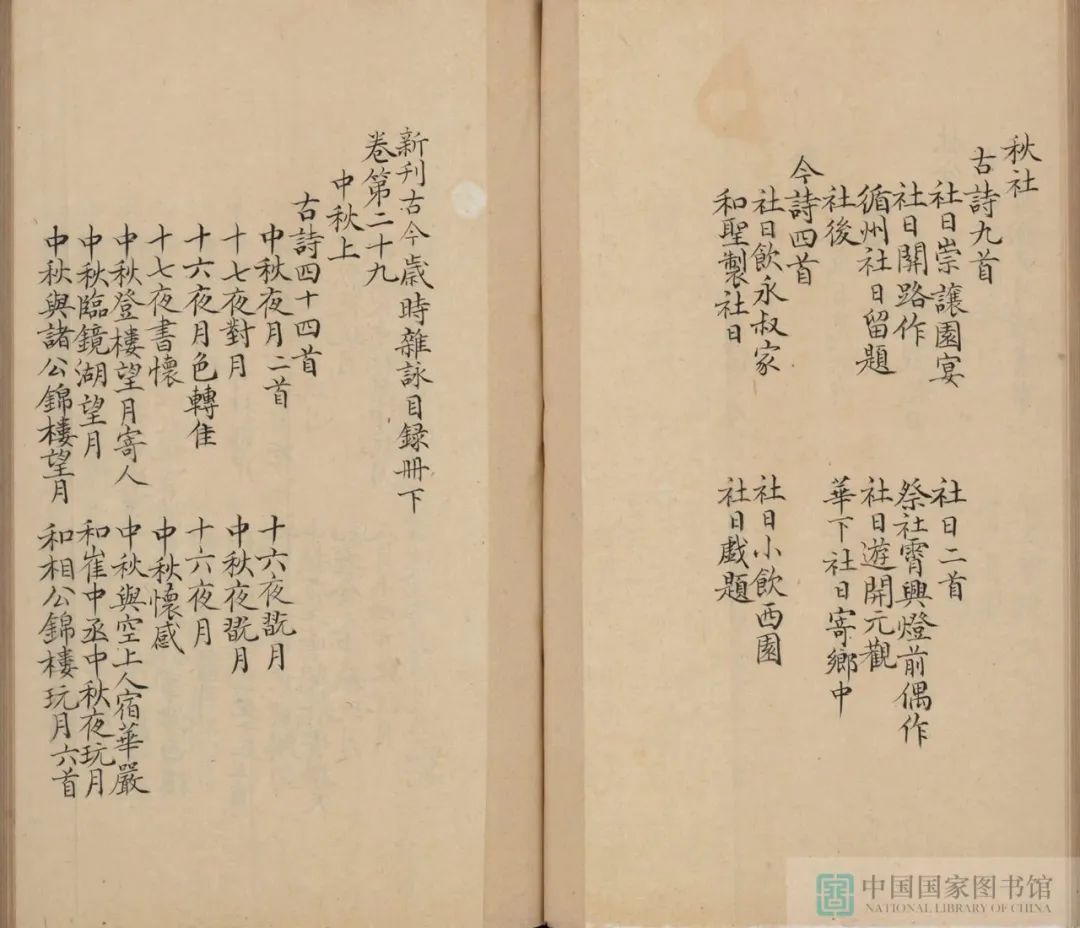 秋社
古詩九首
社日崇讓園宴
社日二首
社日開路作
祭社霄興燈前偶作
循州社日留題
社日遊開元觀
社後
華下社日寄鄉中
今詩四首
社日飲永叔家
社日小飲西園
和聖製社日
社日戲題
新刊古今歲時雜詠目録冊下
卷第二十九
中秋上
古詩四十四首
中秋夜月二首
十六夜翫月
十七夜對月
中秋夜翫月
十六夜月色轉佳
十六夜月
十七夜書懷
中秋懷感
中秋登樓望月寄人
中秋與空上人宿華嚴
中秋臨鏡湖望月
和崔中丞中秋夜玩月
中秋與諸公錦樓望月
和相公錦樓玩月六首
中国国家图书馆
NATIONAL LIBRARY OF CHINA